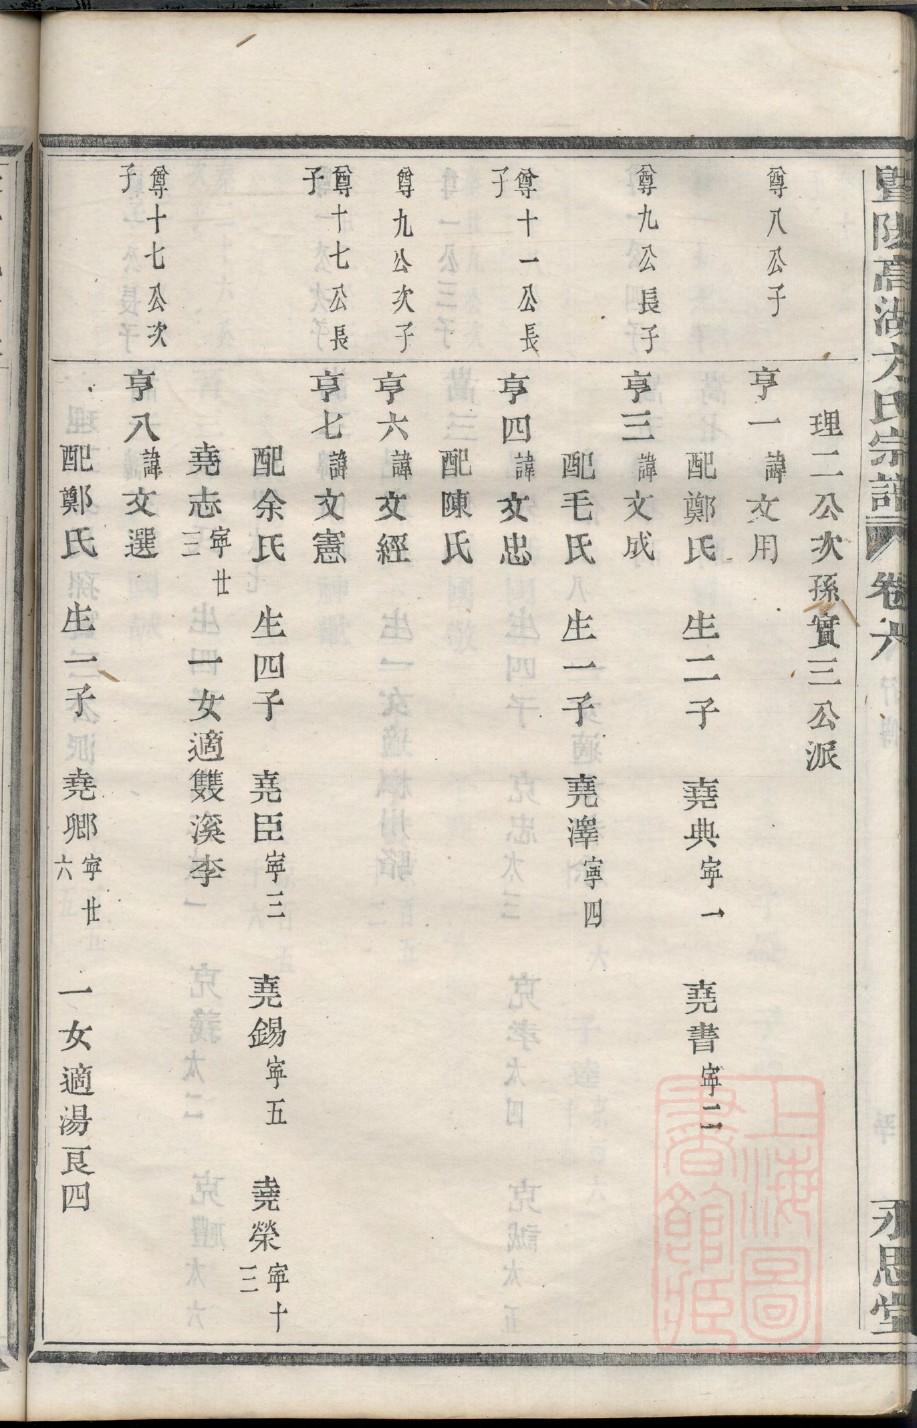 暨陽高湖方氏宗譜 卷六 永思堂
理二公次孫實三公派
尊八公子
亨一諱文用
配鄭氏 生二子 堯典寧一 堯書寧二
尊九公長子
亨三諱文成
配毛氏 生一子 堯澤寧四
尊十一公長子
亨四諱文忠
配陳氏
尊九公次子
亨六諱文經
尊十七公長子
亨七諱文憲
配余氏 生四子 堯臣寧三 堯錫寧五 堯榮寧十三
堯志寧廿三 一女適雙溪李
尊十七公次子
亨八諱文選
配鄭氏 生一子 堯卿寧廿六 一女適湯艮四
上海圖書館藏